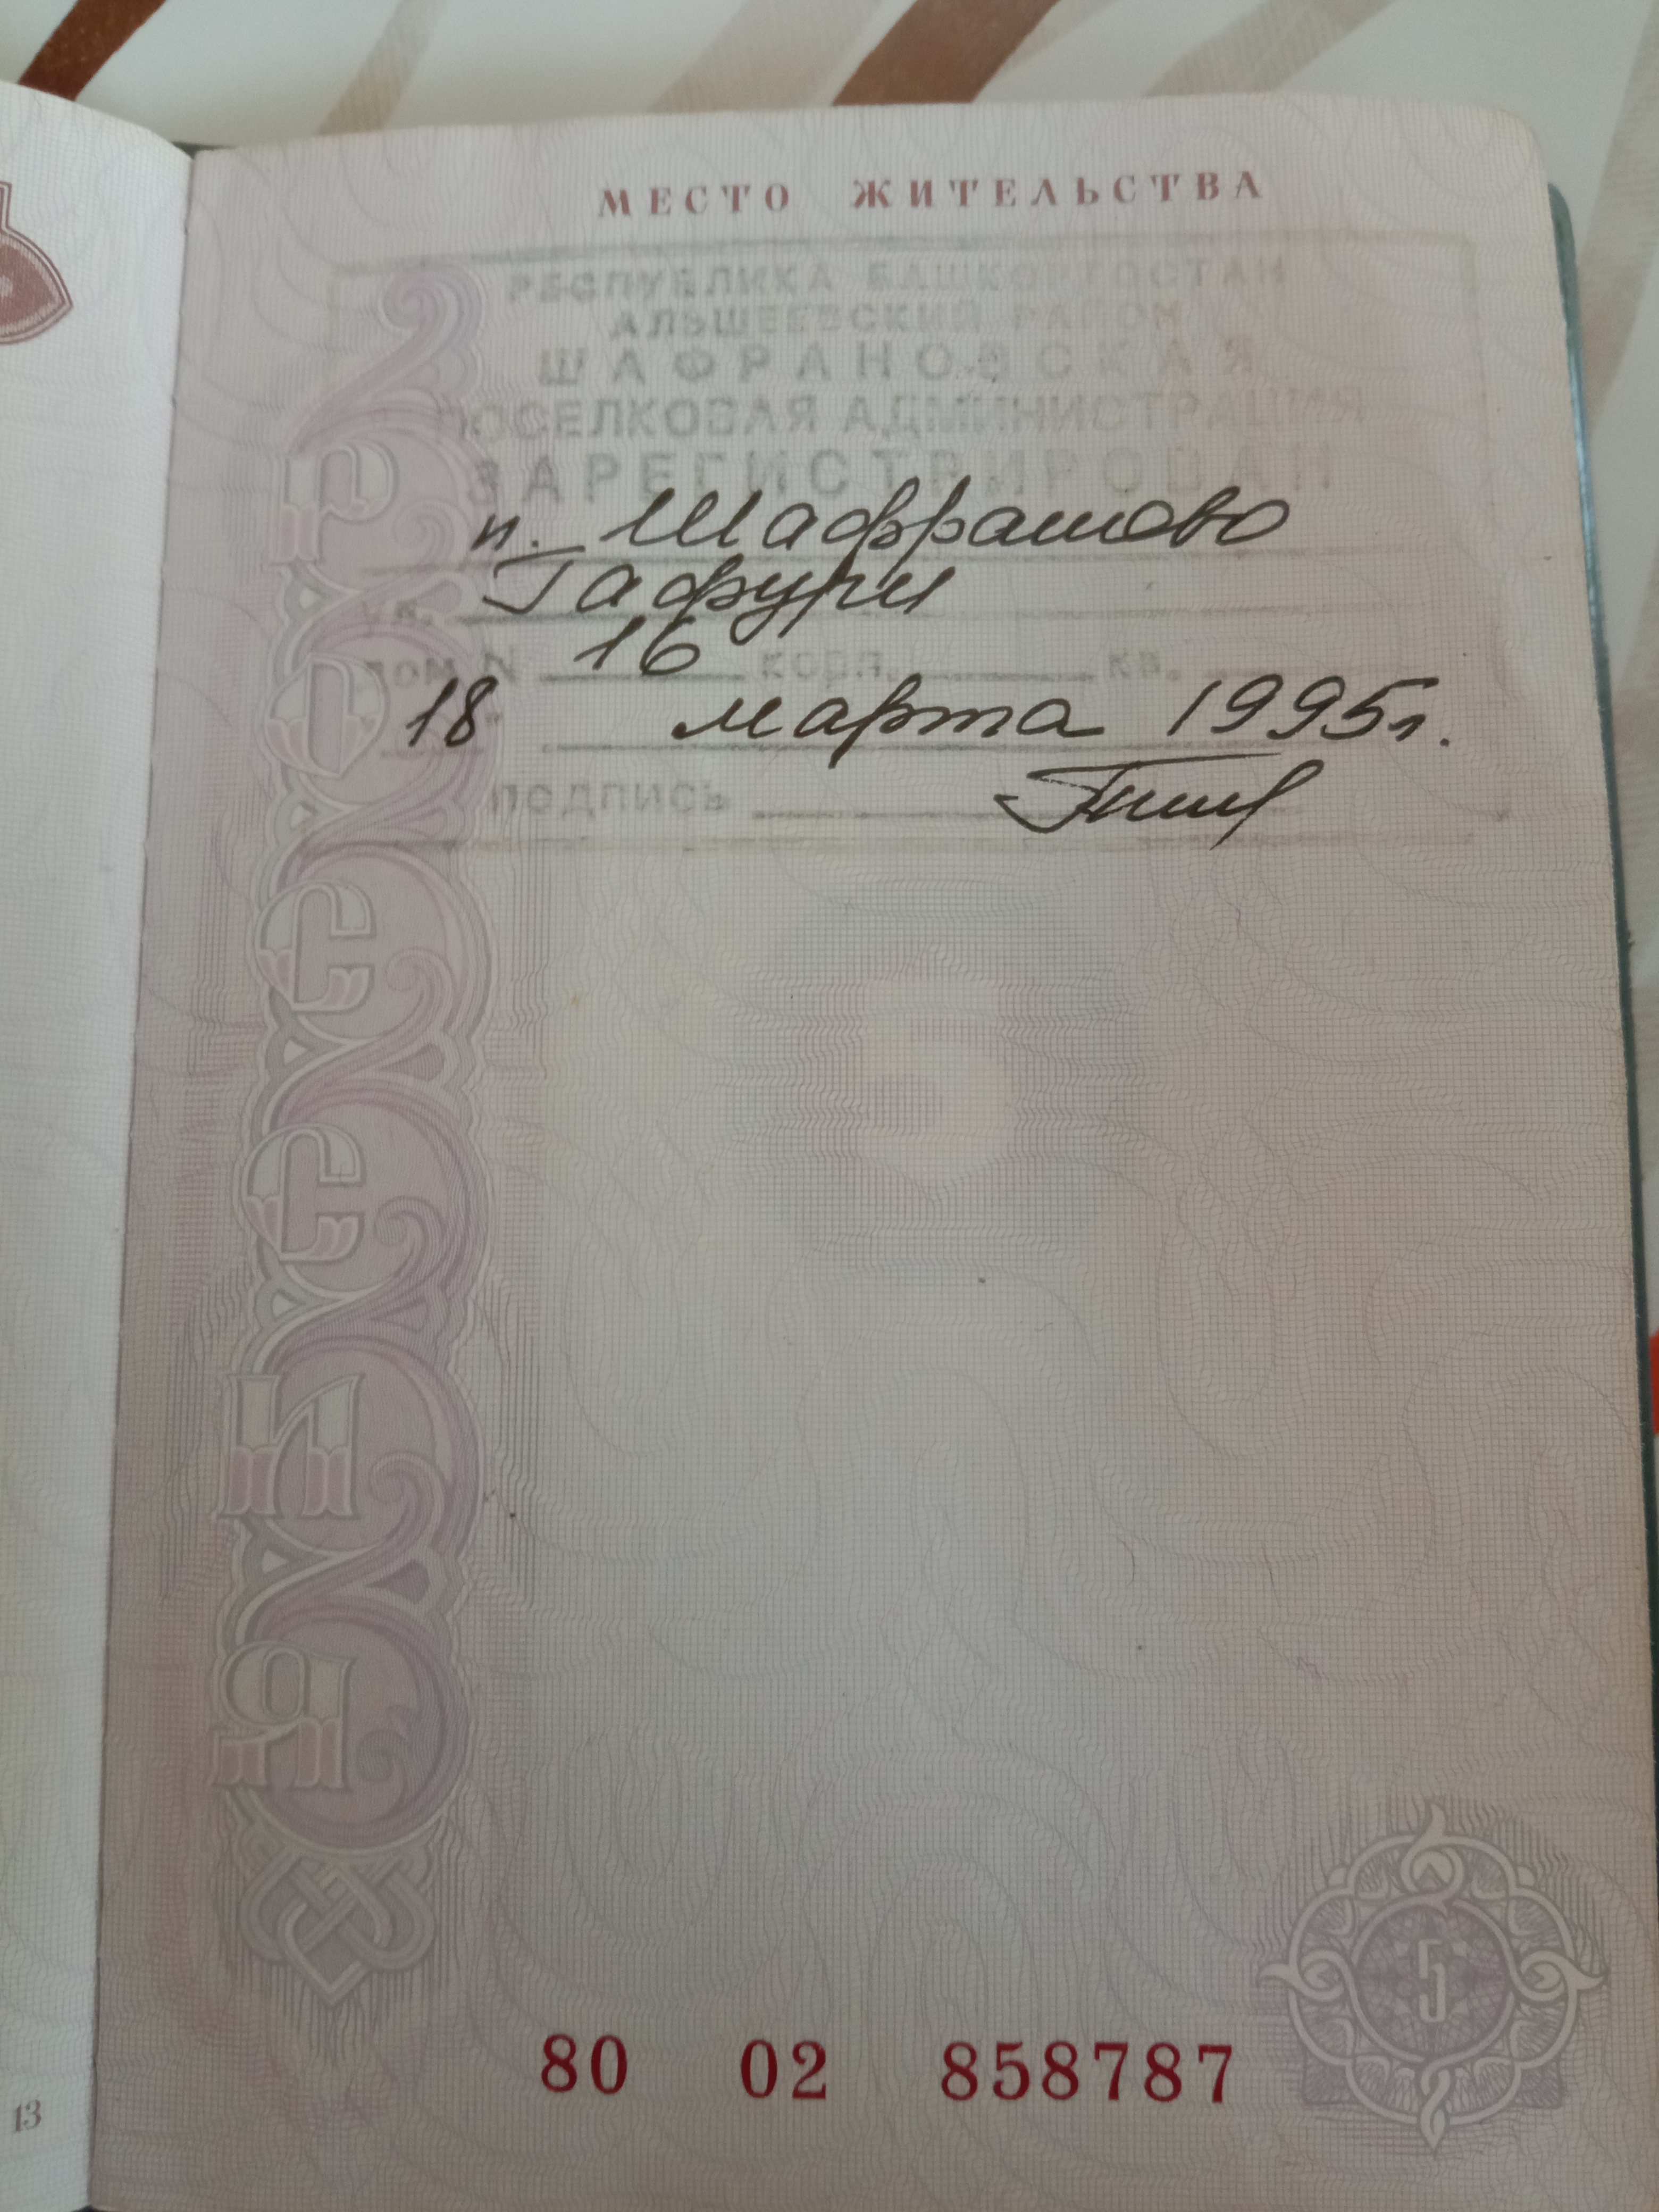 МЕСТО ЖИТЕЛЬСТВА
РЕСПУБЛИКА БАШКОРТОСТАН
АЛЬШЕЕВСКИЙ РАЙОН
ШАФРАНОВСКАЯ
ПОСЕЛКОВАЯ АДМИНИСТРАЦИЯ
ЗАРЕГИСТРИРОВАН
п. Шафраново
ул. Гафури
дом N 16 корп. кв.
"18" марта 1995г.
подпись
РОССИЯ
5
80 02 858787
13